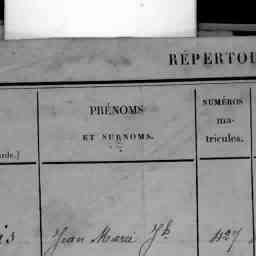 RÉPERTOI
PRÉNOMS
ET SURNOMS.
NUMÉROS
ma-
tricules.
arde.)
is Jean Marie Jh 427